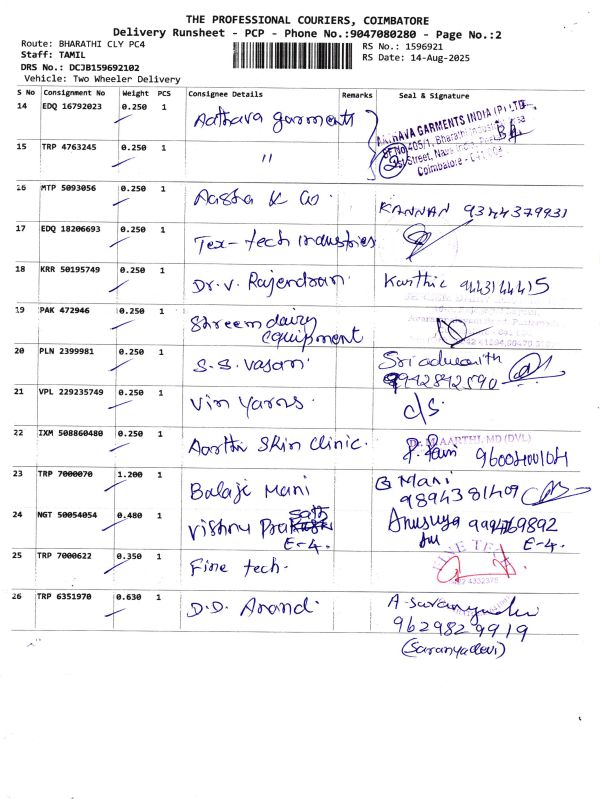 THE PROFESSIONAL COURIERS, COIMBATORE
Delivery Runsheet - PCP - Phone No.:9047080280 - Page No.:2
Route: BHARATHI CLY PC4
RS No.: 1596921
Staff: TAMIL
RS Date: 14-Aug-2025
DRS No.: DCJB159692102
Vehicle: Two Wheeler Delivery
S No Consignment No Weight PCS Consignee Details Remarks Seal & Signature
14 EDQ 16792023 0.250 1 Aathava garments
ATHAVA GARMENTS INDIA (P) LTD.
SF No 405/1, Bharathi Industrial Area
1st Street, Nava India
Coimbatore
15 TRP 4763245 0.250 1 "
16 MTP 5093056 0.250 1 Aasha K Co. KANNAN 9344379931
17 EDQ 18206693 0.250 1 Tex-tech industries
18 KRR 50195749 0.250 1 Dr. V. Rajendran. Karthic 9443144415
19 PAK 472946 0.250 1 Shreem dairy
equipment
20 PLN 2399981 0.250 1 S.S. Vasan. Sriadwaith
9942842590
21 VPL 229235749 0.250 1 Vin Yarns. c/s.
22 IXM 508860480 0.250 1 Aarthi Skin Clinic.
AARTHI, MD (DVL)
P. Rani 9600400104
23 TRP 7000070 1.200 1 Balaji Mani G Mani
9894381409
24 NGT 50054054 0.480 1 Vishnu Prakash Anusuya 9994769892
E-4. E-4.
25 TRP 7000622 0.350 1 Fine tech.
FINE TEC
4332375
26 TRP 6351970 0.630 1 D.D. Anand.
9629829919
(Saranyadevi)